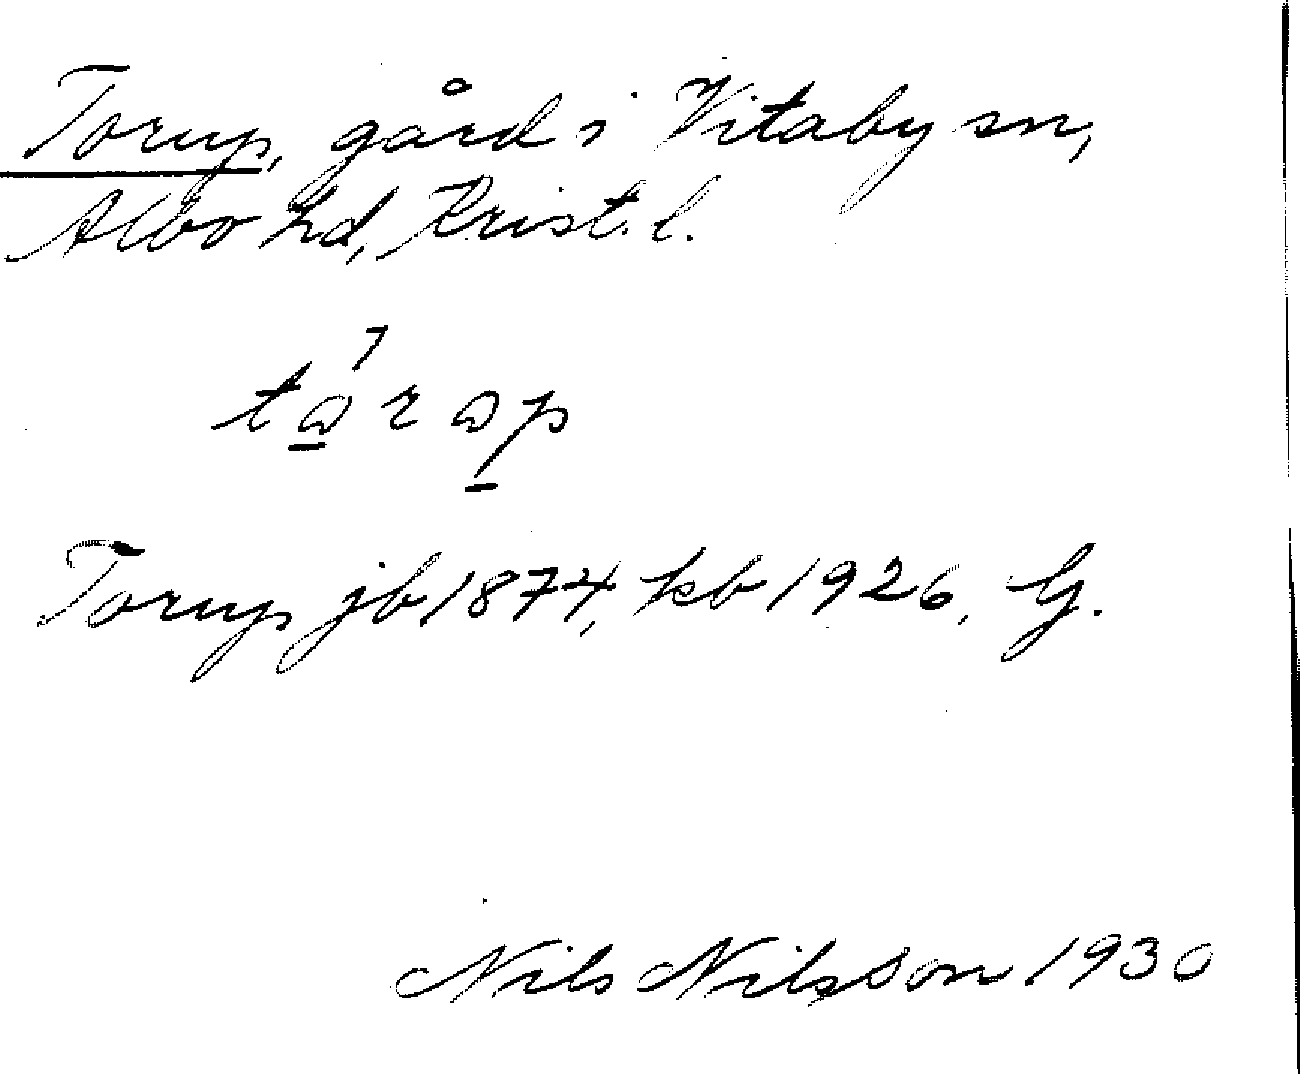 Torup, gård i Vitaby sn,
Albo hd, Krist. l.
tɷ́rɷp
Torup jb 1874, kb 1926, G.
Nils Nilsson 1930